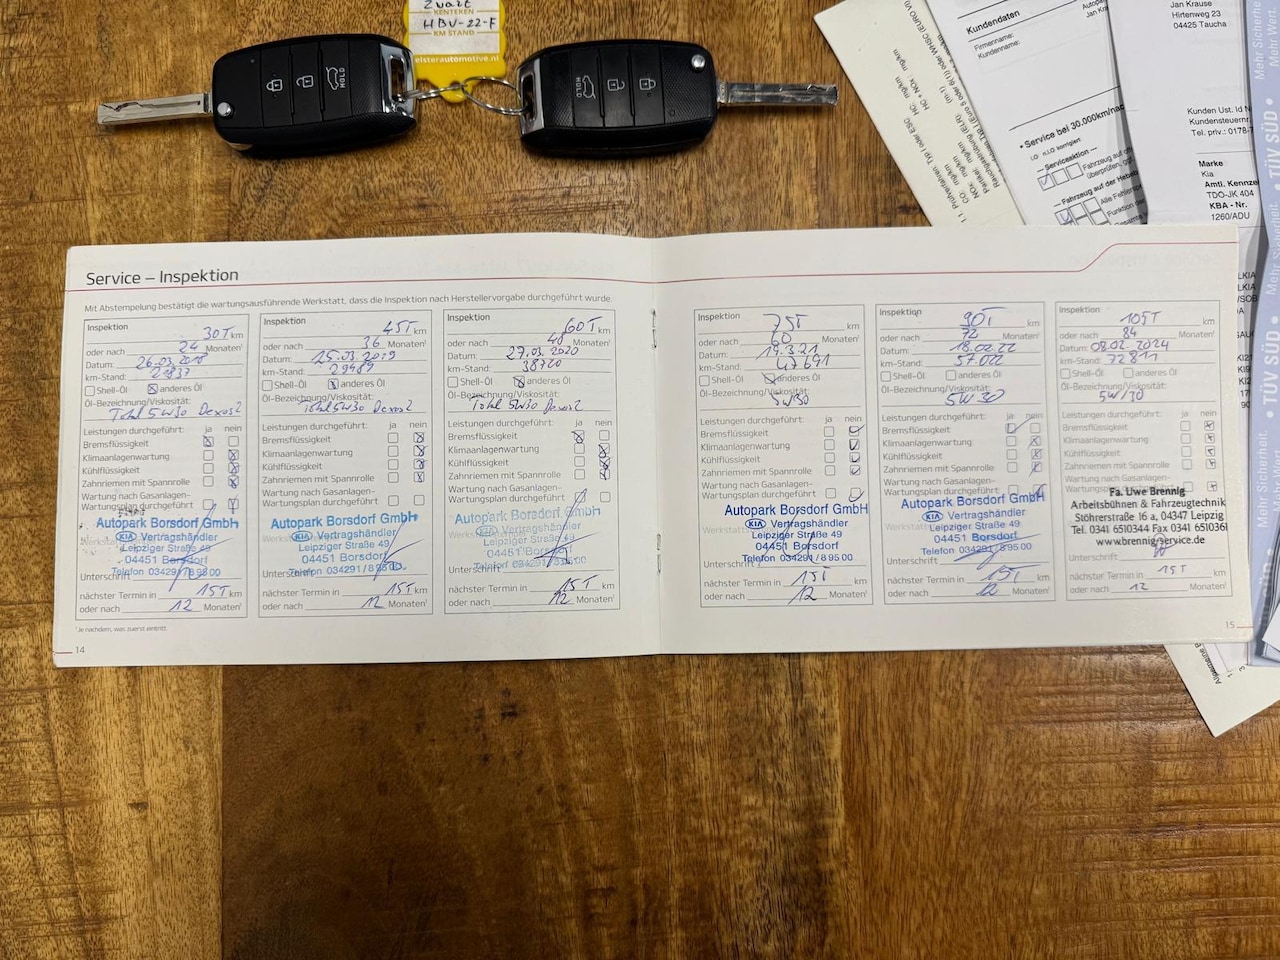 Zwart
KENTEKEN
HBV-22-F
KM STAND
elsterautomotive.nl
HOLD
HOLD
Kundendaten
Firmenname:
Kundenname:
* Service bei 30.000km/nac
i.O n.i.O korrigiert
Serviceaktion
Fahrzeug auf der Hebeb
Alle Fehlerspe
Jan Krause
Hirtenweg 23
04425 Taucha
Kunden Ust. Id N
Kundensteuernr.
Tel. priv.: 0178-7
Marke
Kia
Amtl. Kennze
TDO-JK 404
KBA - Nr.
1260/ADU
Mehr Sicherheit. Mehr Wert.
TÜV SÜD
Service – Inspektion
Mit Abstempelung bestätigt die wartungsausführende Werkstatt, dass die Inspektion nach Herstellervorgabe durchgeführt wurde.
Inspektion
30T km
oder nach 24 Monaten¹
Datum: 26.03.2018
km-Stand: 21837
Shell-Öl anderes Öl
Öl-Bezeichnung/Viskosität:
Total 5W30 Dexos2
Leistungen durchgeführt: ja nein
Bremsflüssigkeit
Klimaanlagenwartung
Kühlflüssigkeit
Zahnriemen mit Spannrolle
Wartung nach Gasanlagen-
Wartungsplan durchgeführt
Autopark Borsdorf GmbH
KIA Vertragshändler
Leipziger Straße 49
04451 Borsdorf
Telefon 034291/89500
Unterschrift
nächster Termin in 15T km
oder nach 12 Monaten¹
Inspektion
45T km
oder nach 36 Monaten¹
Datum: 15.03.2019
km-Stand: 29989
Shell-Öl anderes Öl
Öl-Bezeichnung/Viskosität:
Total 5W30 Dexos2
Leistungen durchgeführt: ja nein
Bremsflüssigkeit
Klimaanlagenwartung
Kühlflüssigkeit
Zahnriemen mit Spannrolle
Wartung nach Gasanlagen-
Wartungsplan durchgeführt
Autopark Borsdorf GmbH
KIA Vertragshändler
Leipziger Straße 49
04451 Borsdorf
Telefon 034291/89500
Unterschrift
nächster Termin in 15T km
oder nach 12 Monaten¹
Inspektion
60T km
oder nach 48 Monaten¹
Datum: 27.03.2020
km-Stand: 38720
Shell-Öl anderes Öl
Öl-Bezeichnung/Viskosität:
Total 5W30 Dexos2
Leistungen durchgeführt: ja nein
Bremsflüssigkeit
Klimaanlagenwartung
Kühlflüssigkeit
Zahnriemen mit Spannrolle
Wartung nach Gasanlagen-
Wartungsplan durchgeführt
Autopark Borsdorf GmbH
KIA Vertragshändler
Leipziger Straße 49
04451 Borsdorf
Telefon 034291/89500
Unterschrift
nächster Termin in 15T km
oder nach 12 Monaten¹
¹ Je nachdem, was zuerst eintritt.
14
Inspektion
75T km
oder nach 60 Monaten¹
Datum: 19.3.21
km-Stand: 47691
Shell-Öl anderes Öl
Öl-Bezeichnung/Viskosität:
5W30
Leistungen durchgeführt: ja nein
Bremsflüssigkeit
Klimaanlagenwartung
Kühlflüssigkeit
Zahnriemen mit Spannrolle
Wartung nach Gasanlagen-
Wartungsplan durchgeführt
Autopark Borsdorf GmbH
KIA Vertragshändler
Leipziger Straße 49
04451 Borsdorf
Telefon 034291/89500
Unterschrift
nächster Termin in 15T km
oder nach 12 Monaten¹
Inspektion
90T km
oder nach 72 Monaten¹
Datum: 18.02.22
km-Stand: 57022
Shell-Öl anderes Öl
Öl-Bezeichnung/Viskosität:
5W30
Leistungen durchgeführt: ja nein
Bremsflüssigkeit
Klimaanlagenwartung
Kühlflüssigkeit
Zahnriemen mit Spannrolle
Wartung nach Gasanlagen-
Wartungsplan durchgeführt
Autopark Borsdorf GmbH
KIA Vertragshändler
Leipziger Straße 49
04451 Borsdorf
Telefon 034291/89500
Unterschrift
nächster Termin in 15T km
oder nach 12 Monaten¹
Inspektion
105T km
oder nach 84 Monaten¹
Datum: 08.02.2024
km-Stand: 72811
Shell-Öl anderes Öl
Öl-Bezeichnung/Viskosität:
5W/30
Leistungen durchgeführt: ja nein
Bremsflüssigkeit
Klimaanlagenwartung
Kühlflüssigkeit
Zahnriemen mit Spannrolle
Wartung nach Gasanlagen-
Fa. Uwe Brennig
Arbeitsbühnen & Fahrzeugtechnik
Stöhrerstraße 16 a, 04347 Leipzig
Tel. 0341 6510344 Fax 0341 651036
www.brennig-service.de
Unterschrift
nächster Termin in 15T km
oder nach 12 Monaten¹
15